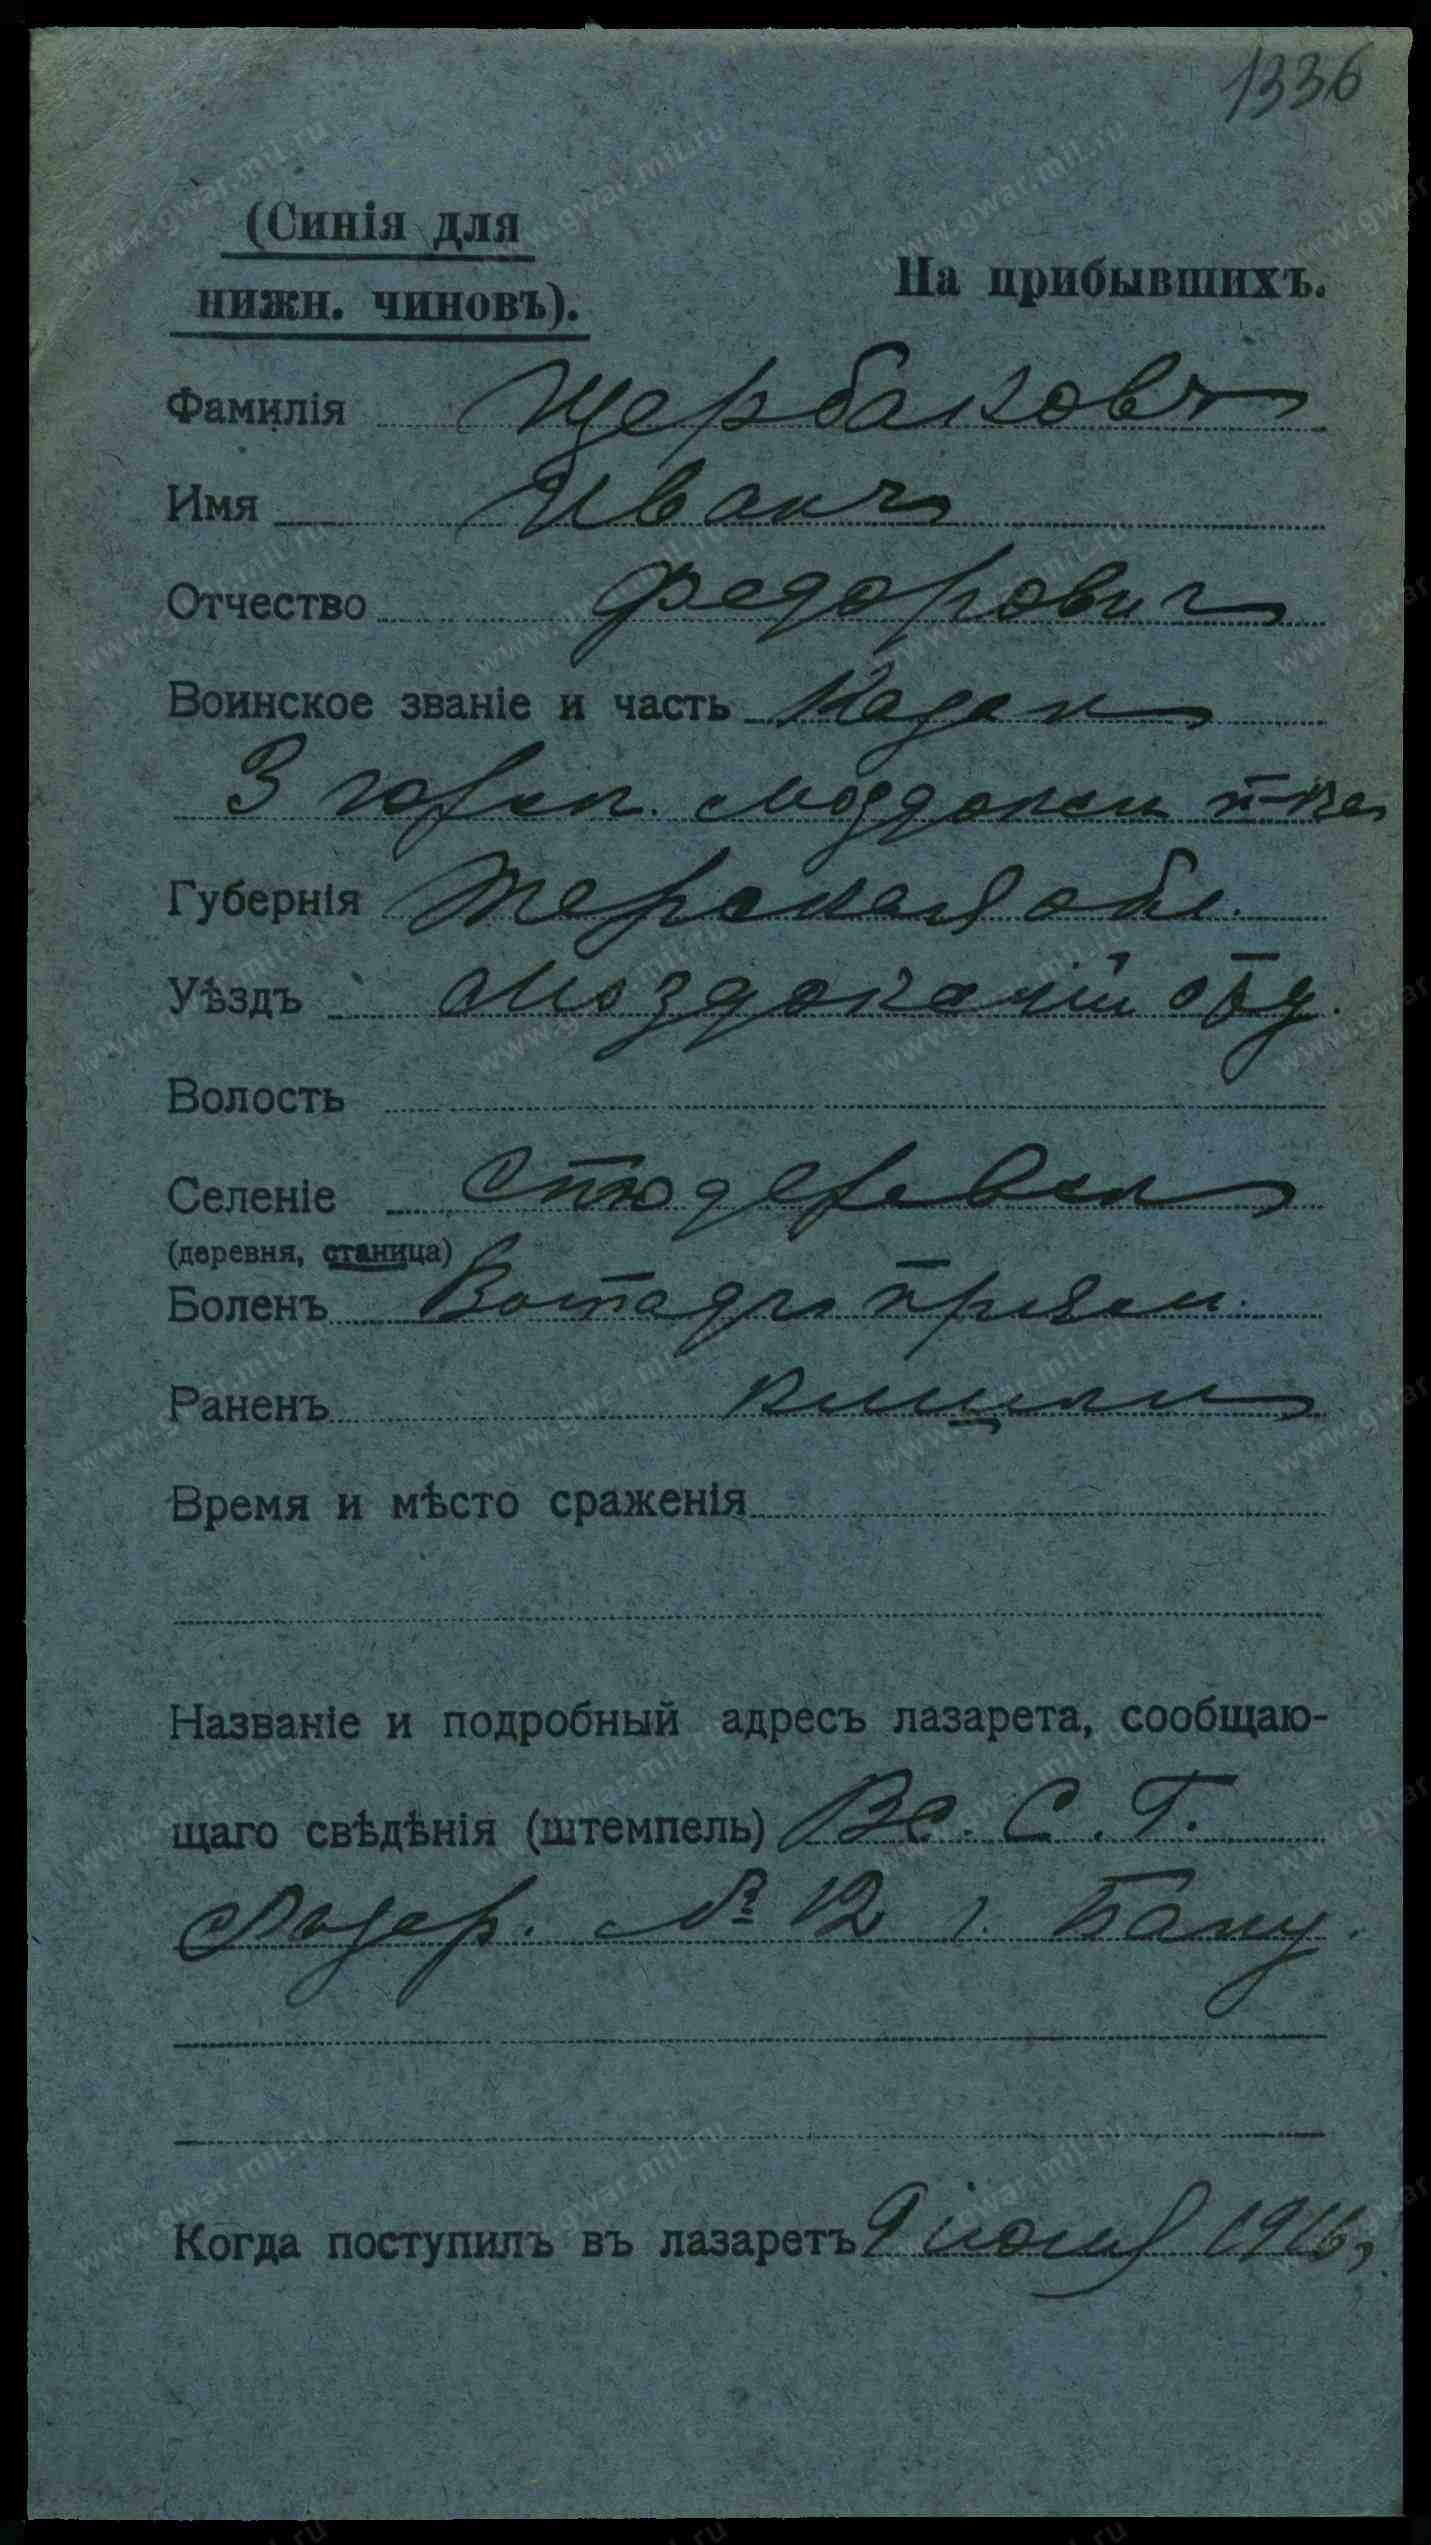 1336
(Синія для
нижн. чиновъ).
На прибывшихъ.
Фамилія Щербаковъ
Имя Иванъ
Отчество Федорович
Воинское званіе и часть Казак
3 горск. Моздокск п-ка
Губернія Терская обл.
Уѣздъ Моздокскій отд.
Волость
Селеніе Стодеревск
(деревня, станица)
Боленъ прям.
Раненъ кишки
Время и мѣсто сраженія
Названіе и подробный адресъ лазарета, сообщаю-
щаго свѣдѣнія (штемпель) Вс. С. Г.
Лазар. № 12 г. Баку.
Когда поступилъ въ лазаретъ 9 іюля 1916,
www.gwar.mil.ru